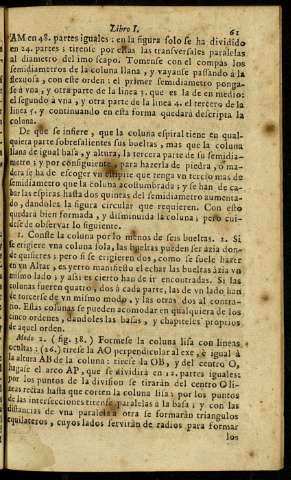 Libro I. 61
AM en 48. partes iguales: en la figura solo se ha dividido
en 24. partes; tirense por ellas las transversales paralelas
al diametro del imo scapo. Tomense con el compas los
semidiametros de la coluna llana, y vayanse passando à la
flexuosa, con este orden: el primer semidiametro ponga-
se à vna, y otra parte de la linea 3. que es la de en medio:
el segundo à vna, y otra parte de la linea 4. el tercero de la
linea 5. y continuando en esta forma quedarà descripta la
coluna.
De que se infiere, que la coluna espiral tiene en qual-
quiera parte sobresalientes sus bueltas, mas que la coluna
llana de igual basa, y altura, la tercera parte de su semidia-
metro; y por consiguiente, para hazerla de piedra, ò ma-
dera se ha de escoger vn que tenga vn tercio mas de
semidiametro que la coluna acostumbrada; y se han de ca-
bar las espiras hasta dos quintos del semidiametro aumenta-
do, dandoles la figura circular que requieren. Con esto
quedarà bien formada, y disminuida la coluna; pero cui-
dese de observar lo siguiente.
1. Conste la coluna por lo menos de seis bueltas. 2. Si
se erigiere vna coluna sola, las bueltas pueden ser àzia don-
de quisieres; pero si se erigieren dos, como se suele hazer
en vn Altar, es yerro manifiesto el echar las bueltas àzia vn
mismo lado; y assi es cierto han de ir encontradas. Si las
colunas fueren quatro, dos à cada parte, las de vn lado han
de torcerse de vn mismo modo, y las otras dos al contra-
rio. Estas colunas se pueden acomodar en qualquiera de los
cinco ordenes, dandoles las basas, y chapiteles proprios
de aquel orden.
Modo 2. (fig. 38.) Formese la coluna lisa con lineas
ocultas; (26.) tirese la AO perpendicular al exe, è igual à
la altura AB de la coluna: tirese la OB, y del centro O,
hagase el arco AP, que se dividirà en 12. partes iguales:
por los puntos de la division se tiraràn del centro O li-
neas rectas hasta que corten la coluna lisa; por los puntos
de las intersecciones tirense paralelas à la basa; y con las
distancias de vna paralela à otra se formaràn triangulos
equilateros, cuyos lados serviràn de radios para formar
los